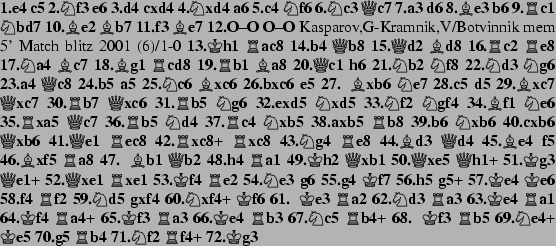 1.e4 c5 2.♘f3 e6 3.d4 cxd4 4.♘xd4 a6 5.c4 ♘f6 6.♘c3 ♕c7 7.a3 d6 8.♗e3 b6 9.♖c1
♘bd7 10.♗e2 ♗b7 11.f3 ♗e7 12.O–O O–O Kasparov,G-Kramnik,V/Botvinnik mem
5' Match blitz 2001 (6)/1-0 13.♔h1 ♖ac8 14.b4 ♕b8 15.♕d2 ♗d8 16.♖c2 ♖e8
17.♘a4 ♗c7 18.♗g1 ♖cd8 19.♖b1 ♗a8 20.♕c1 h6 21.♘b2 ♘f8 22.♘d3 ♘g6
23.a4 ♕c8 24.b5 a5 25.♘c6 ♗xc6 26.bxc6 e5 27. ♗xb6 ♘e7 28.c5 d5 29.♗xc7
♕xc7 30.♖b7 ♕xc6 31.♖b5 ♘g6 32.exd5 ♘xd5 33.♘f2 ♘gf4 34.♗f1 ♘e6
35.♖xa5 ♕c7 36.♖b5 ♘d4 37.♖c4 ♘xb5 38.axb5 ♖b8 39.b6 ♘xb6 40.cxb6
♕xb6 41.♕e1 ♖ec8 42.♖xc8+ ♖xc8 43.♘g4 ♖e8 44.♗d3 ♕d4 45.♗e4 f5
46.♗xf5 ♖a8 47. ♗b1 ♕b2 48.h4 ♖a1 49.♔h2 ♕xb1 50.♕xe5 ♕h1+ 51.♔g3
♕e1+ 52.♕xe1 ♖xe1 53.♔f4 ♖e2 54.♘e3 g6 55.g4 ♔f7 56.h5 g5+ 57.♔e4 ♔e6
58.f4 ♖f2 59.♘d5 gxf4 60.♘xf4+ ♔f6 61. ♔e3 ♖a2 62.♘d3 ♖a3 63.♔e4 ♖a1
64.♔f4 ♖a4+ 65.♔f3 ♖a3 66.♔e4 ♖b3 67.♘c5 ♖b4+ 68. ♔f3 ♖b5 69.♘e4+
♔e5 70.g5 ♖b4 71.♘f2 ♖f4+ 72.♔g3